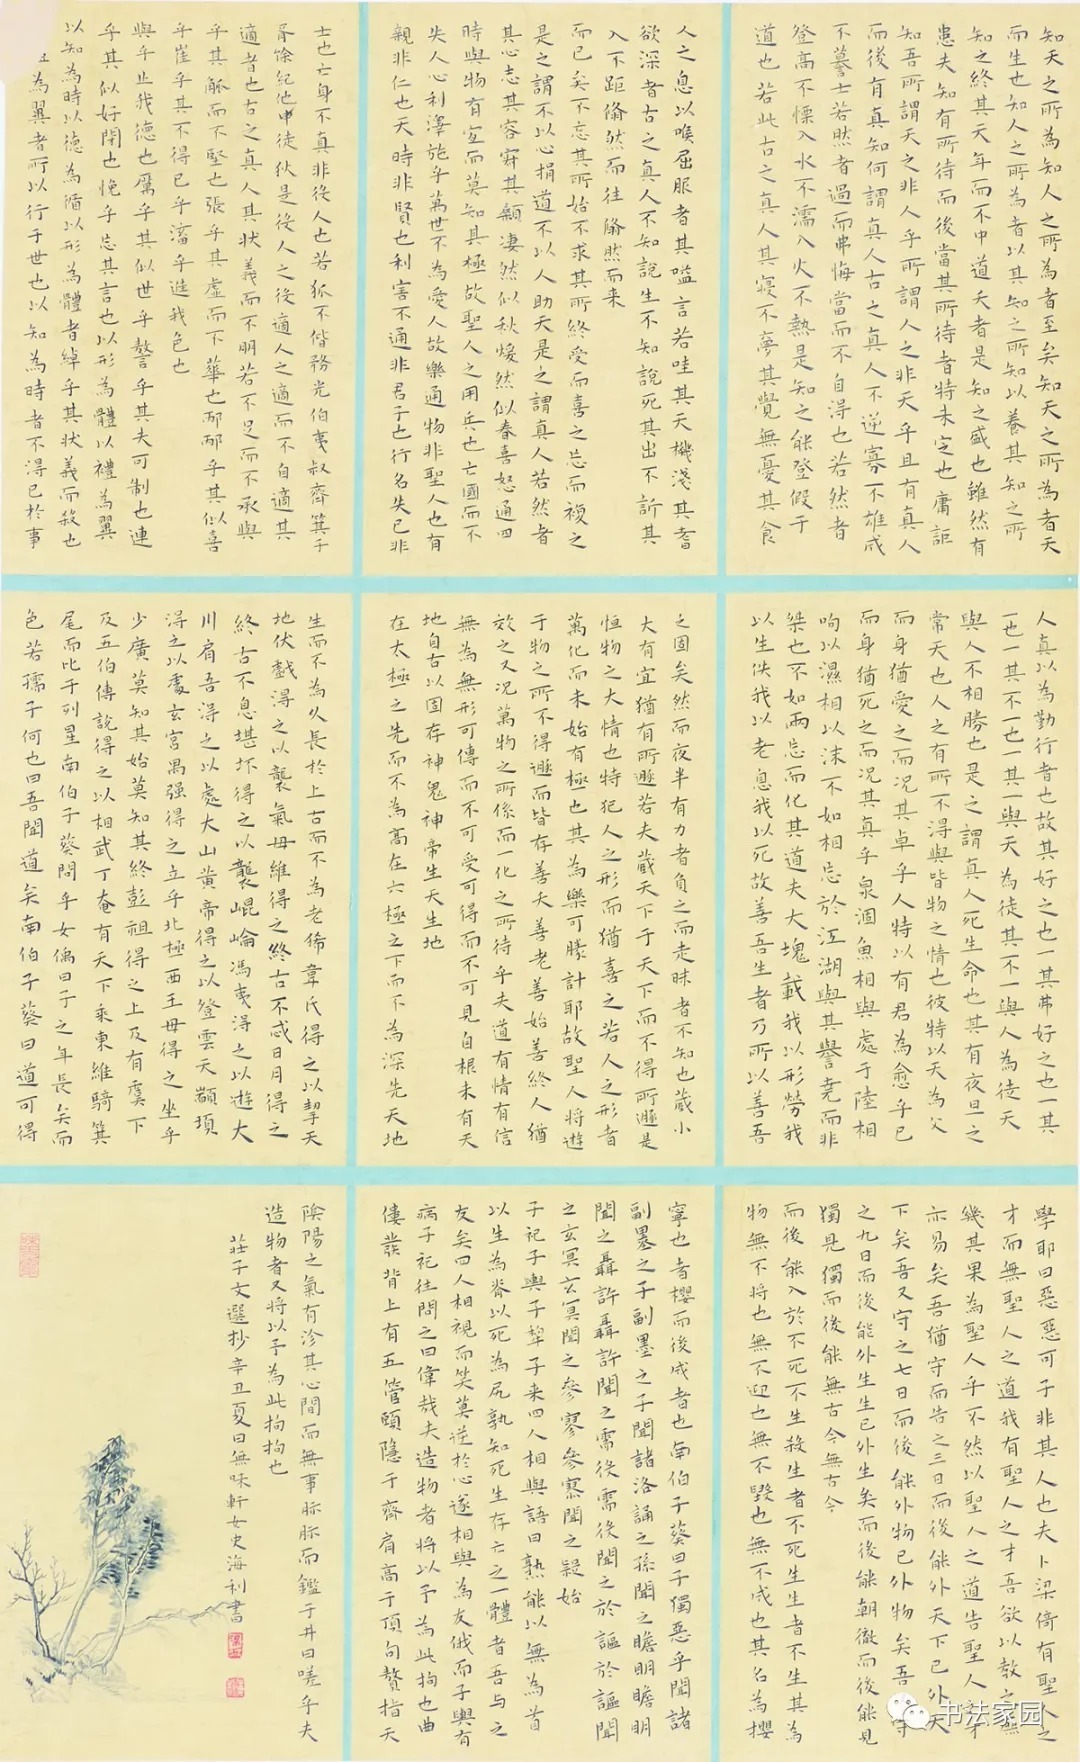 知天之所為知人之所為者至矣知天之所為者天
而生也知人之所為者以其知之所知以養其知之所
知之終其天年而不中道夭者是知之盛也雖然有
患夫知有所待而後當其所待者特未定也庸詎
知吾所謂天之非人乎所謂人之非天乎且有真人
而後有真知何謂真人古之真人不逆寡不雄成
不謩士若然者過而弗悔當而不自得也若然者
登高不慄入水不濡入火不熱是知之能登假于
道也若此古之真人其寢不夢其覺無憂其食
人之息以喉屈服者其嗌言若哇其天機淺其耆
欲深者古之真人不知說生不知說死其出不訢其
入不距翛然而往翛然而来
而已矣不忘其所始不求其所終受而喜之忘而複之
是之謂不以心捐道不以人助天是之謂真人若然者
其心志其容寂其顙凄然似秋煖然似春喜怒通四
時與物有宜而莫知其極故聖人之用兵也亡國而不
失人心利澤施乎萬世不為愛人故樂通物非聖人也有
親非仁也天時非賢也利害不通非君子也行名失已非
士也亡身不真非役人也若狐不偕務光伯夷叔齊箕子
胥餘紀他申徒狄是役人之役適人之適而不自適其
適者也古之真人其狀義而不明若不足而不承與
乎其觚而不堅也張乎其虛而不華也邴邴乎其似喜
乎崔乎其不得已乎滀乎進我色也
與乎止我德也厲乎其似世乎謷乎其未可制也連
乎其似好閉也悗乎忘其言也以形為體以禮為翼
以知為時以德為循以形為體者綽乎其状義而殺也
為翼者所以行于世也以知為時者不得已於事
人真以為勤行者也故其好之也一其弗好之也一其
一也一其不一也一其一與天為徒其不一與人為徒天
與人不相勝也是之謂真人死生命也其有夜旦之
常天也人之有所不得與皆物之情也彼特以天為父
而身猶愛之而况其卓乎人特以有君為愈乎已
而身猶死之而况其真乎泉涸魚相與處于陸相
呴以濕相以沫不如相忘於江湖與其譽堯而非
桀也不如兩忘而化其道夫大塊載我以形勞我
以生佚我以老息我以死故善吾生者乃所以善吾
之固矣然而夜半有力者負之而走昧者不知也藏小
大有宜猶有所遯若夫藏天下于天下而不得所遯是
恒物之大情也特犯人之形而猶喜之若人之形者
萬化而未始有極也其為樂可勝計耶故聖人将遊
于物之所不得遯而皆存善夭善老善始善終人猶
效之又况萬物之所係而一化之所待乎夫道有情有信
無為無形可傳而不可受可得而不可見自根未有天
地自古以固存神鬼神帝生天生地
在太極之先而不為高在六極之下而不為深先天地
生而不為久長於上古而不為老狶韋氏得之以挈天
地伏戲得之以襲氣母維得之終古不忒日月得之
終古不息堪坏得之以襲崐崘馮夷得之以遊大
川肩吾得之以處大山黄帝得之以登雲天顓頊
得之以處玄宮禺强得之立乎北極西王母得之坐乎
少廣莫知其始莫知其終彭祖得之上及有虞下
及五伯傅說得之以相武丁奄有天下乘東維騎箕
尾而比于列星南伯子葵問乎女偊曰子之年長矣而
色若孺子何也曰吾聞道矣南伯子葵曰道可得
學耶曰惡惡可子非其人也夫卜梁倚有聖人之
才而無聖人之道我有聖人之才吾欲以教之
幾其果為聖人乎不然以聖人之道告聖人之才
亦易矣吾猶守而告之三日而後能外天下已外天
下矣吾又守之七日而後能外物已外物矣吾守
之九日而後能外生生已外生矣而後能朝徹而後能見
獨見獨而後能無古今無古今
而後能入於不死不生殺生者不死生生者不生其為
物無不将也無不迎也無不毀也無不成也其名為攖
寧也者攖而後成者也南伯子葵曰子獨惡乎聞諸
副墨之子副墨之子聞諸洛誦之孫聞之瞻明瞻明
聞之聶許聶許聞之需役需役聞之於謳於謳聞
之玄冥玄冥聞之參寥參寥聞之疑始
子祀子輿子犂子来四人相與語曰孰能以無為首
以生為脊以死為尻孰知死生存亡之一體者吾与之
友矣四人相視而笑莫逆於心遂相與為友俄而子輿有
病子祀往問之曰偉哉夫造物者将以予為此拘也曲
僂發背上有五管頤隱于齊肩高于頂句贅指天
陰陽之氣有沴其心間而無事跈跈而鑑于井曰嗟乎夫
造物者又将以予為此拘拘也
莊子文選抄辛丑夏日無味軒女史海利書
书法家园